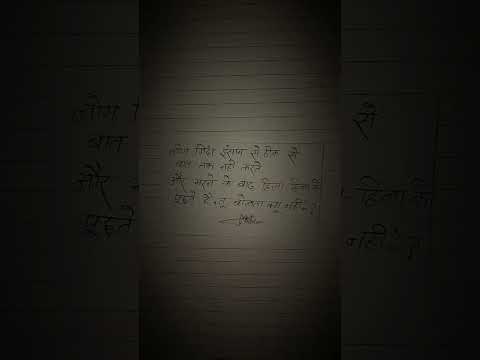 लोग जिंदा इंसान से ठिक से
बात तक नही करते
और मरने के बाद हिला हिला के
पूछते है, तू बोलता क्यू नही..?